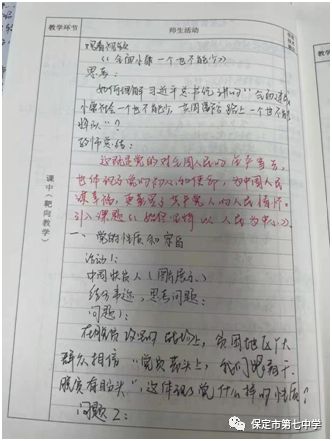 教学环节
师生活动
观看视频
《全面小康一个也不能少》
思考:
如何理解习近平总书记讲的"全面建成
小康社会一个也不能少,共同富裕路上一个也不能
掉队"?
教师总结:
这就是党的对全国人民的庄严
也体现了党的初心和使命,为中国人民
谋幸福,
引入课题《始终坚持以人民为中心》.
一、党的性质和宗旨
活动1:
中国扶贫人(图片展示)
结合事迹,思考问题:
问题1:
在脱贫攻坚的战场上,贫困地区广大
群众相信"党员带头上,我们跟着干,
脱贫有盼头",这体现了党什么样的性质?
问题2:
课中(靶向教学)
保定市第七中学